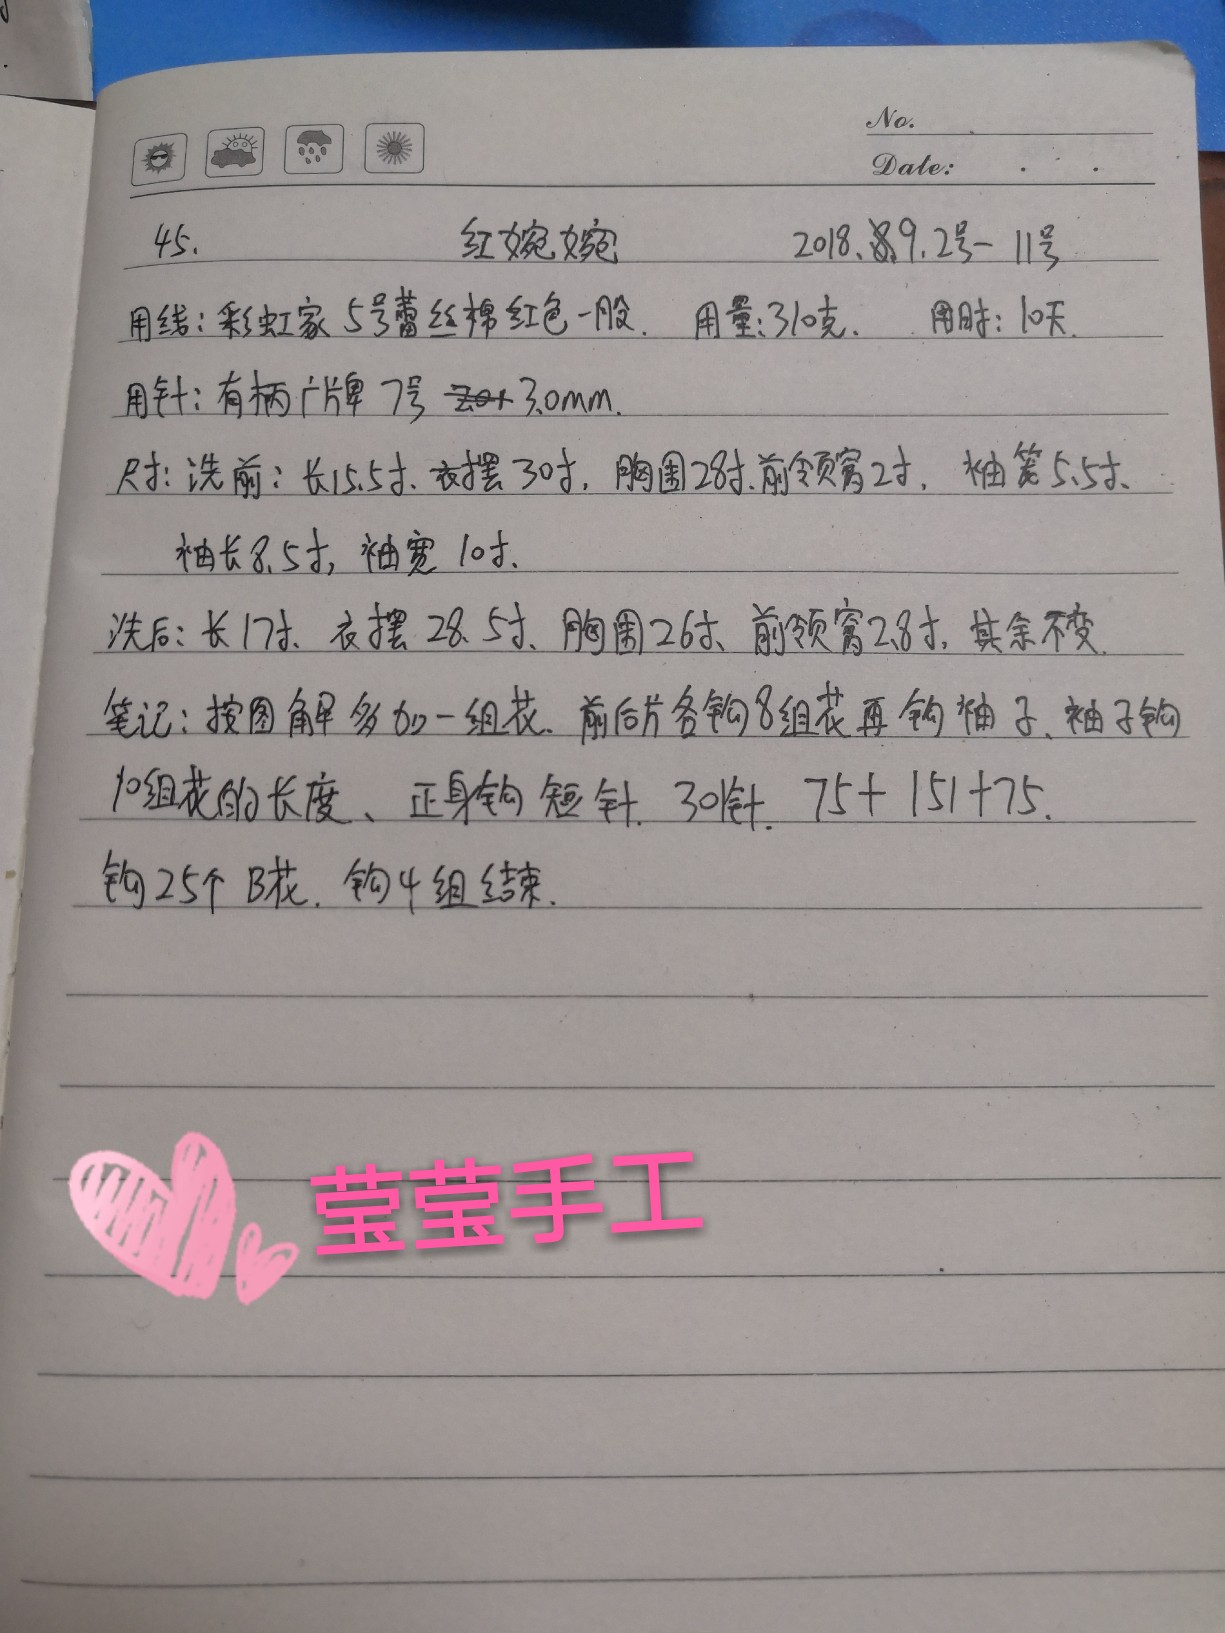 No.
Date:
45. 红婉婉 2018.9.2号-11号
用线：彩虹家5号蕾丝棉红色一股. 用量：310克. 用时：10天.
用针：有柄广牌7号 3.0mm.
尺寸：洗前：长15.5寸、衣摆30寸，胸围28寸.前领窝2寸，袖笼5.5寸、
袖长8.5寸，袖宽10寸.
洗后：长17寸、衣摆28.5寸、胸围26寸、前领窝2.8寸，其余不变.
笔记：按图解多加一组花、前后片各钩8组花再钩袖子、袖子钩
10组花的长度、正身钩短针.301针.75+151+75.
钩25个B花.钩4组结束.
莹莹手工